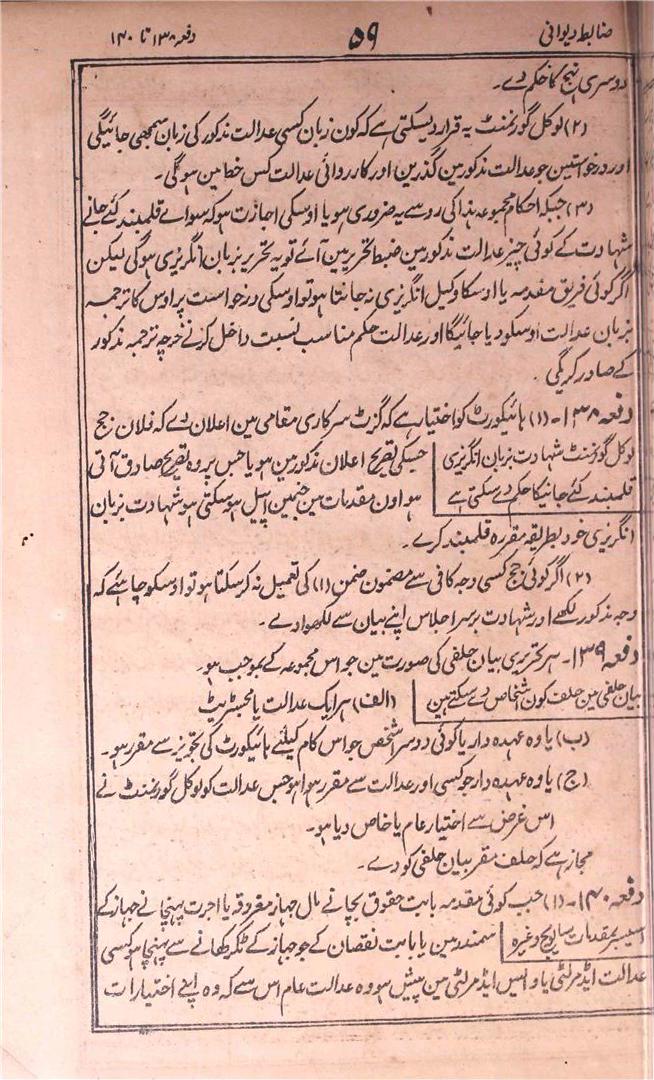 ضابطہ دیوانی
۵۹
دفعہ ۱۳۸ تا ۱۴۰
دوسری نہج کا حکم دے۔
(۲) لوکل گورنمنٹ یہ قرار دیسکتی ہے کہ کون زبان کسی عدالت مذکور کی زبان سمجھی جائیگی
اور درخواستین جو عدالت مذکور مین گذرین اور کارروائی عدالت کس خط مین ہوگی۔
(۳) جبکہ احکام مجموعہ ہذا کی رو سے یہ ضروری ہو یا اوسکی اجازت ہو کہ سواے قلمبند کئے جانے
شہادت کے کوئی چیز عدالت مذکور مین ضبط تحریر مین آئے تو یہ تحریر بزبان انگریزی ہوگی لیکن
اگر کوئی فریق مقدمہ یا اوسکا وکیل انگریزی نہ جانتا ہو تو اوسکی درخواست پر اوس کا ترجمہ
بزبان عدالت اوسکو دیا جائیگا اور عدالت حکم مناسب نسبت داخل کرنے خرچہ ترجمہ مذکور
کے صادر کریگی۔
دفعہ ۱۳۸۔ (۱) ہائیکورٹ کو اختیار ہے کہ گزٹ سرکاری مقامی مین اعلان دے کہ فلان جج
لوکل گورنمنٹ شہادت بزبان انگریزی
قلمبند کئے جانیکا حکم دے سکتی ہے
جسکی تصریح اعلان مذکور مین ہو یا جس پر وہ تصریح صادق آتی
ہو اون مقدمات مین جنمین اپیل ہو سکتی ہو شہادت بزبان
انگریزی خود بطریقہ مقررہ قلمبند کرے۔
(۲) اگر کوئی جج کسی وجہ کافی سے مضمون ضمن (۱) کی تعمیل نہ کر سکتا ہو تو اوسکو چاہئے کہ
وجہ مذکور لکھے اور شہادت برسر اجلاس اپنے بیان سے لکھوا دے۔
دفعہ ۱۳۹۔ ہر تحریری بیان حلفی کی صورت مین جو اس مجموعہ کے بموجب ہو۔
بیان حلفی مین حلف کون اشخاص دے سکتے ہین
(الف) ہر ایک عدالت یا مجسٹریٹ
(ب) یا وہ عہدہ دار یا کوئی دوسرا شخص جو اس کام کیلئے ہائیکورٹ کی تجویز سے مقرر ہو۔
(ج) یا وہ عہدہ دار جو کسی اور عدالت سے مقرر ہوا ہو جس عدالت کو لوکل گورنمنٹ نے
اس غرض سے اختیار عام یا خاص دیا ہو۔
مجاز ہے کہ حلف مقر بیان حلفی کو دے۔
دفعہ ۱۴۰۔ (۱) جب کوئی مقدمہ بابت حقوق بچانے مال جہاز مغروقہ یا اجرت پہنچانے جہاز کے
اسیسر بمقدمات سالویج وغیرہ
سمندر مین یا بابت نقصان کے جو جہاز کے ٹکر کھانے سے پہنچا ہو کسی
عدالت ایڈمرلٹی یا وائیس ایڈمرلٹی مین پیش ہو وہ عدالت عام اس سے کہ وہ اپنے اختیارات